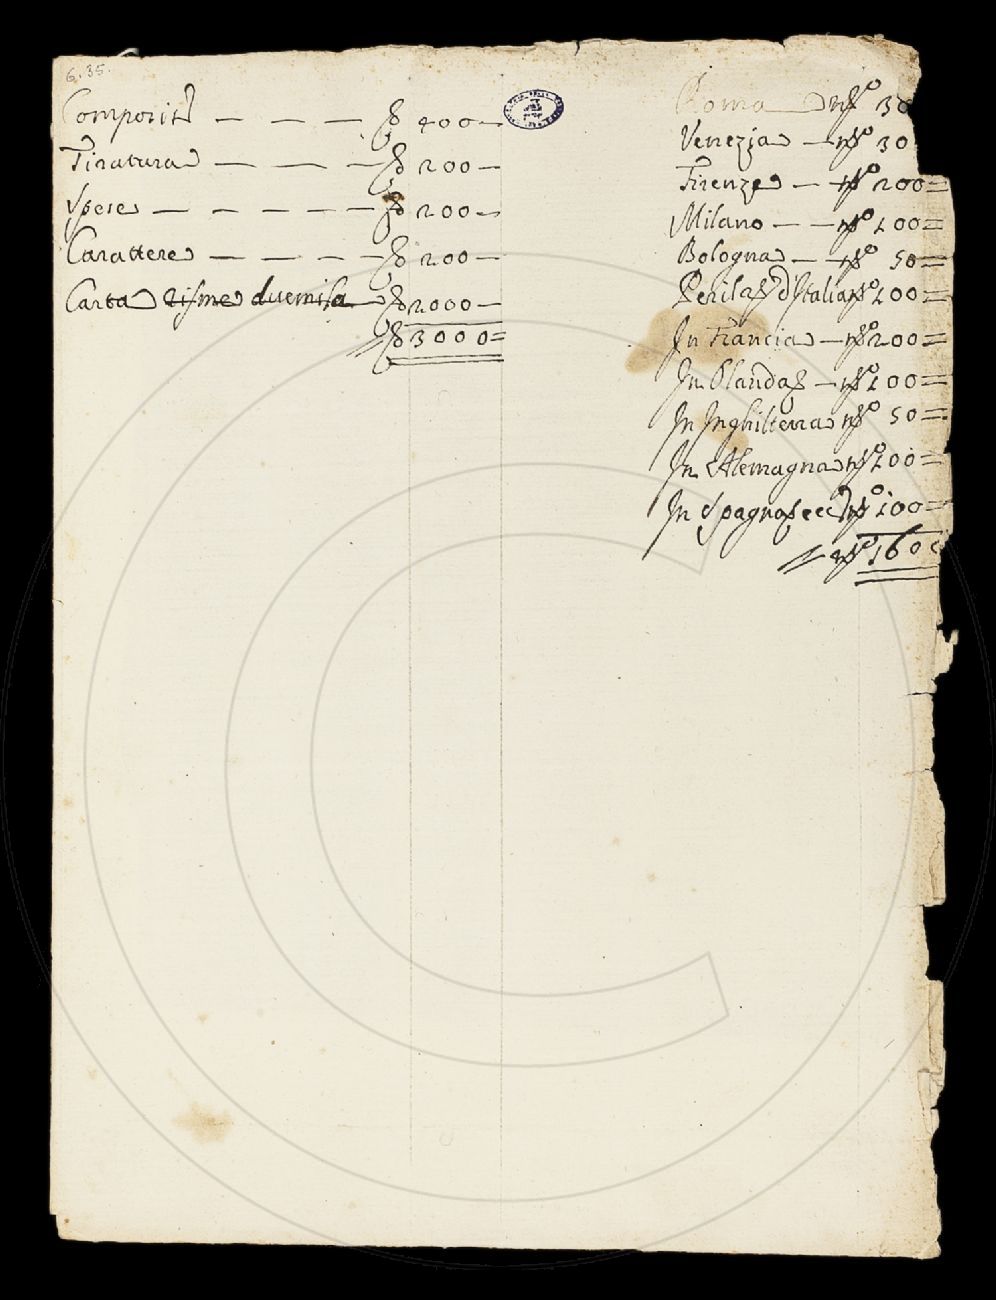 6.35.
Composit — — — 400 —
Tiratura — — — 200 —
Spese — — — — — 200 —
Carattere — — — — 200 —
Carta risme duemila — 2000 —
3000 =
Roma — nſº 30
Venezia — nº 30
Firenze — nº 200 =
Milano — — nº 100 =
Bologna — nº 50 =
d'Italia nº 100 =
In Francia — nº 200 =
In Olanda — nº 100 =
In Inghilterra nº 50 =
In Alemagna nº 100 =
In Spagna ecc nº 100 =
nº 160